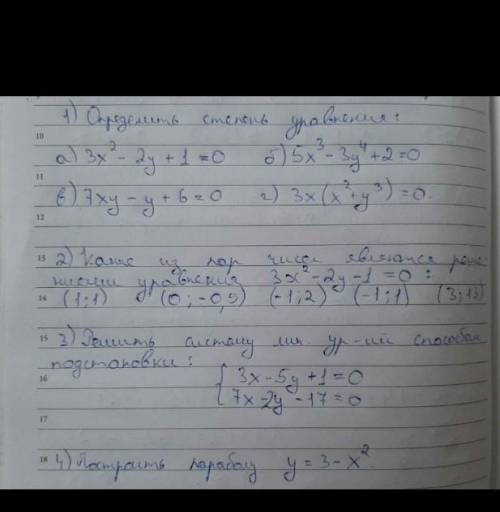 1) Определить степень уравнения:
10
а) 3x² - 2y + 1 = 0 б) 5x³ - 3y⁴ + 2 = 0
11
в) 7xy - y + 6 = 0 г) 3x(x² + y³) = 0.
12
13 2) Какие из пар чисел являются реше-
ниями уравнения 3x² - 2y - 1 = 0 :
14 (1; 1) (0; -0,5) (-1; 2) (-1; 1) (3; 13)
15 3) Решить систему лин. ур-ий способом
подстановки:
16 { 3x - 5y + 1 = 0
7x - 2y - 17 = 0
17
18 4) Построить параболу y = 3 - x².